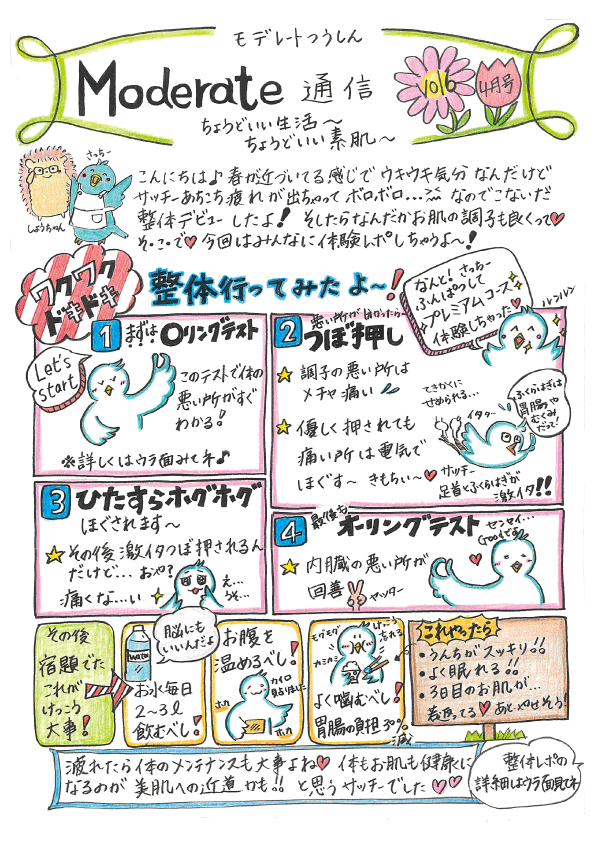 モデレートつうしん
Moderate 通信
1016
4月号
ちょうどいい生活〜
ちょうどいい素肌〜
さっちー
しょうちゃん
こんにちは♪ 春が近づいてる感じで ウキウキ気分 なんだけど
サッチーあちこち疲れが出ちゃって ボロボロ… なのでこないだ
整体デビューしたよ! そしたらなんだかお肌の調子も良くって♥
そ・こ・で♥ 今回はみんなに体験レポしちゃうよ〜!
ワクワク
ドキドキ
整体行ってみたよ〜!
なんと! さっちー
ふんぱつして
プレミアムコース
体験しちゃった♥
ルンルン
1 まずは Oリングテスト
Let's
start
このテストで体の
悪い所がすぐ
わかる!
※詳しくはウラ面みてネ♪
2 悪い所が分かったら
つぼ押し
★ 調子の悪い所は
メチャ痛い
★ 優しく押されても
痛い所は電気で
ほぐす〜 きもちぃ〜♥
てきかくに
せめられる…
イタタ〜
ふくらはぎは
胃腸や
むくみ
だって!
サッチー
足首とふくらはぎが
激イタ!!
3 ひたすらホグホグ
ほぐされます〜
★ その後 激イタつぼ押されるん
だけど… おや?
痛くな…い
え…
うそ…
4 最後も オーリングテスト
★ 内臓の悪い所が
回善 ヤッター
センセイ…
Goodです
その後
宿題でた
これが
けっこう
大事!
water
脳にも
いいんだよ
お水毎日
2〜3ℓ
飲むべし!
お腹を
温めるべし!
カイロ
貼りました
ホカ
ホカ
モグモグ
カミカミ
けっこう
忘れる
よく噛むべし!
胃腸の負担30%
減
これやったら
・うんちがスッキリ!!
・よく眠れる!!
・3日目のお肌が…
若返ってる♥ あとやせそう!
疲れたら体のメンテナンスも大事よね♥ 体もお肌も健康に
なるのが 美肌への近道かも!! と思うサッチーでした♥♥
整体レポの
詳細はウラ面見てネ